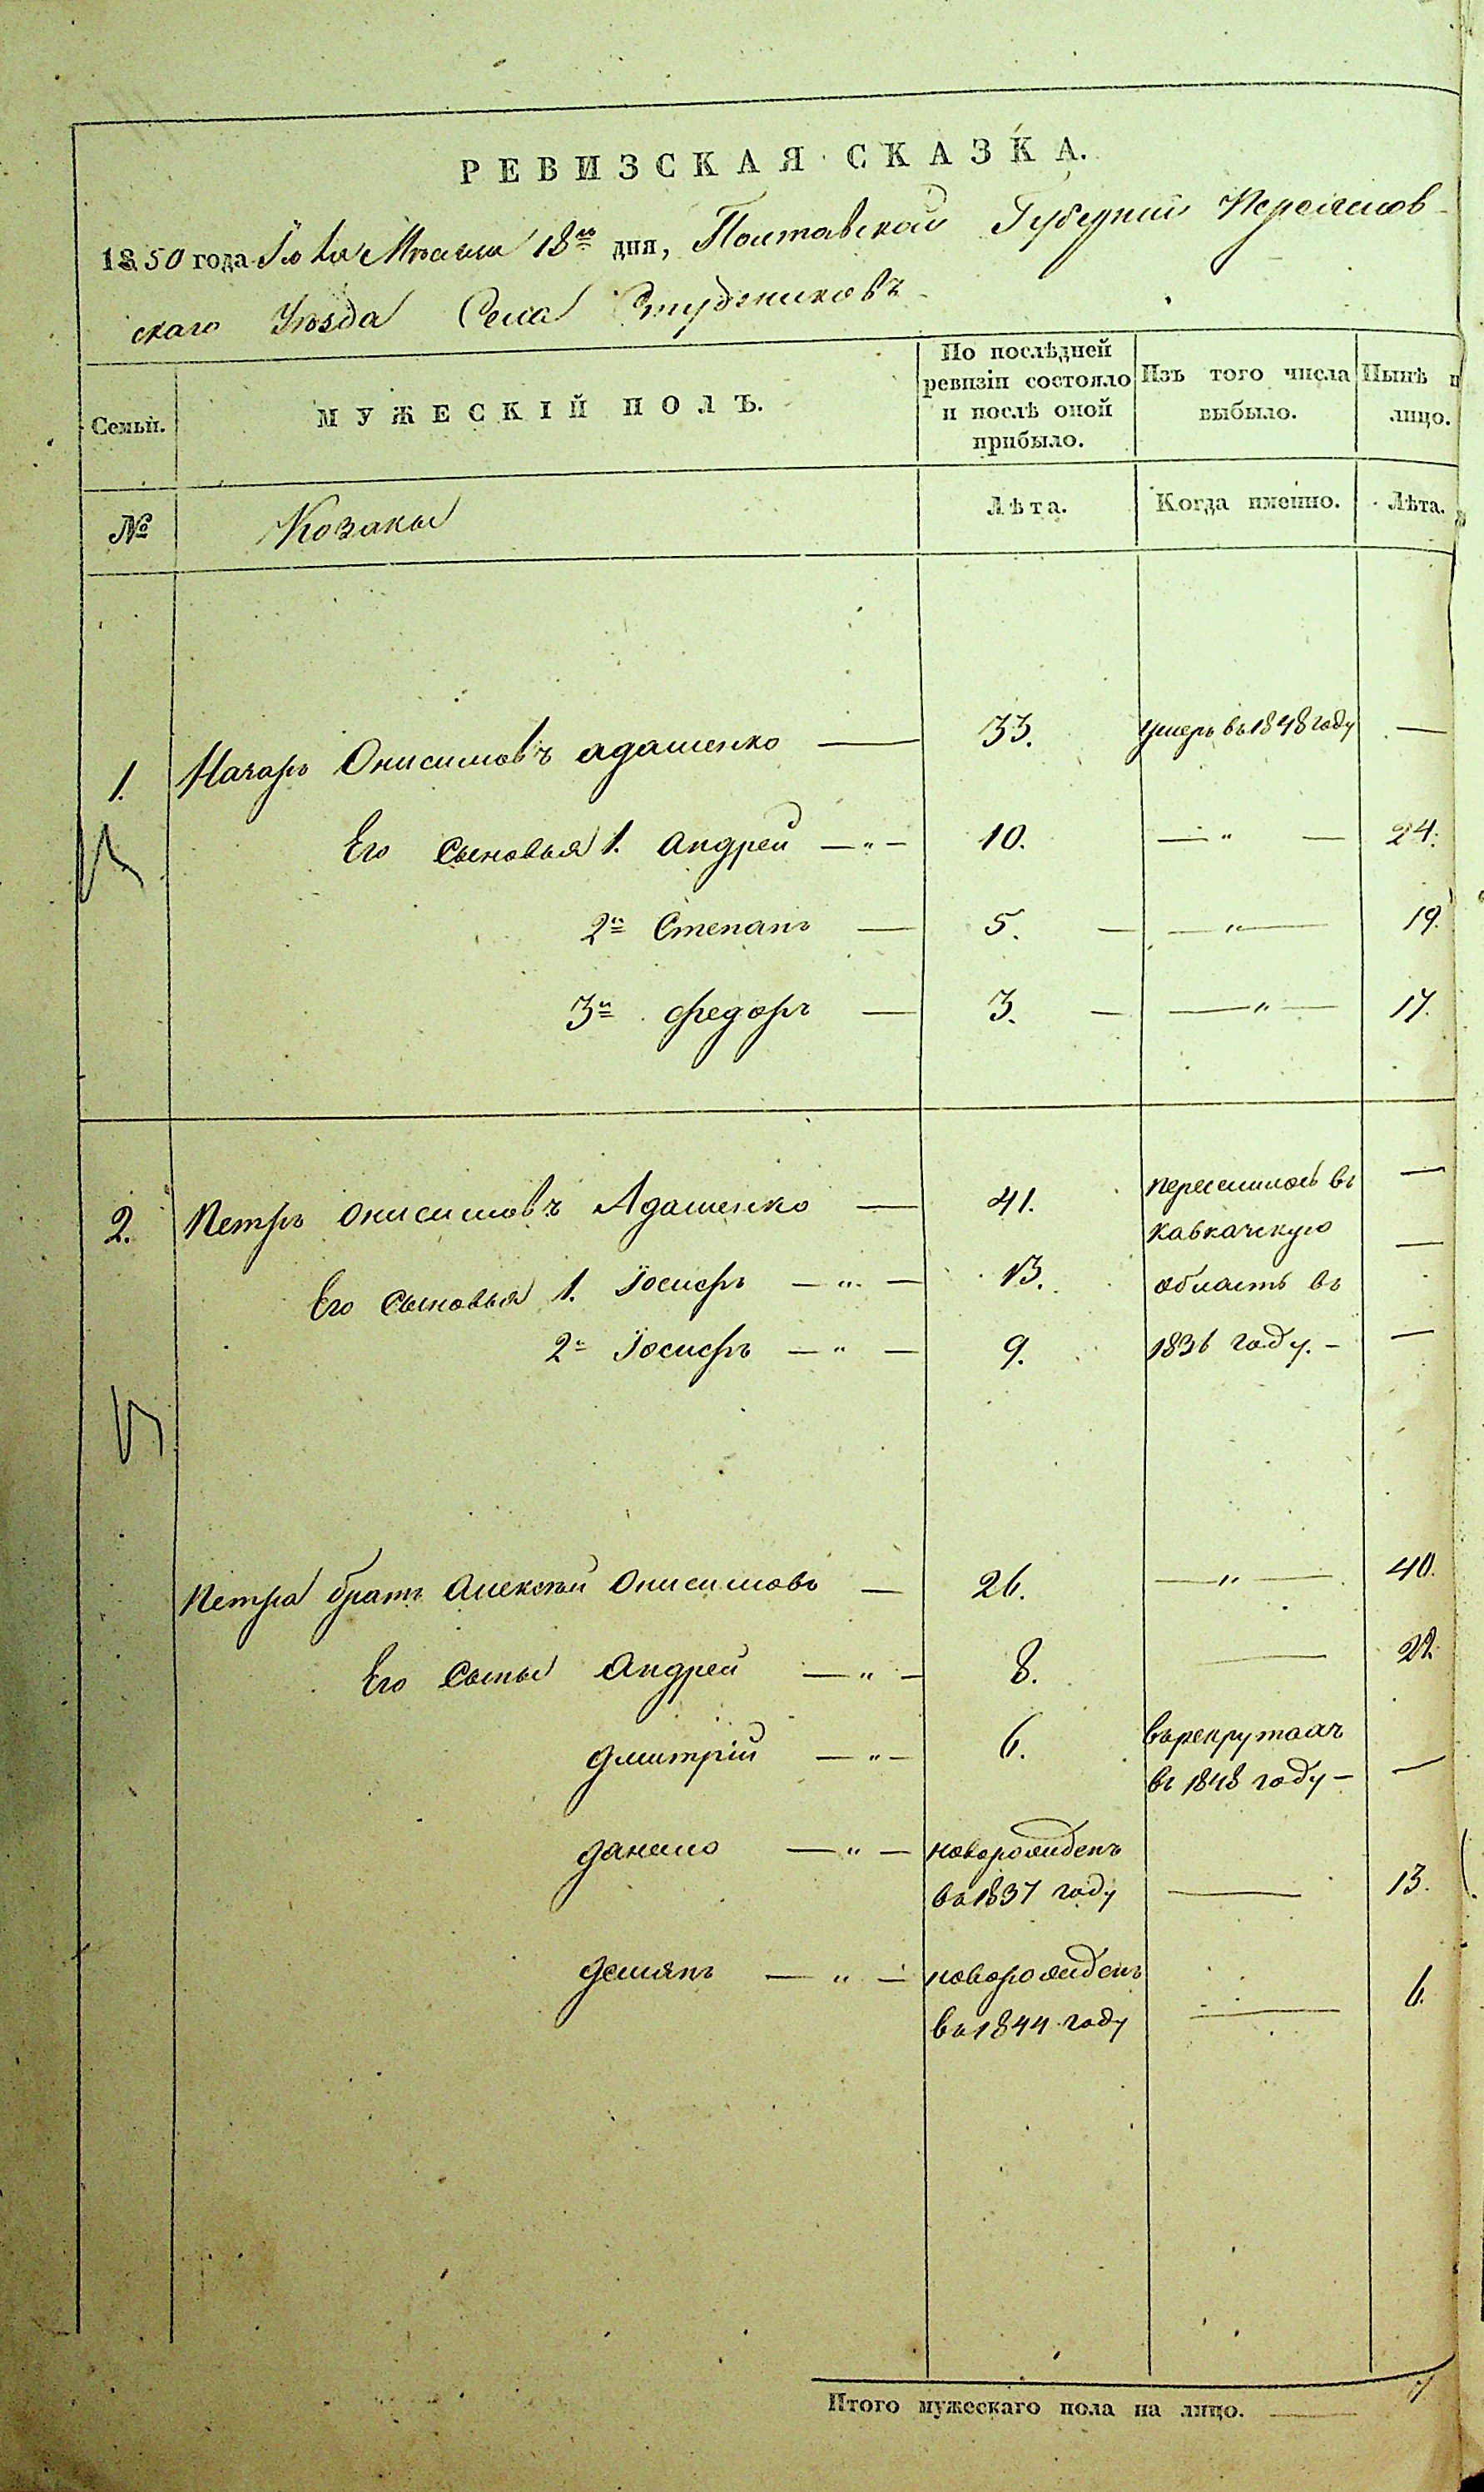 РЕВИЗСКАЯ СКАЗКА.
1850 года Июля Месяца 18го дня, Полтавской Губернии Переяслов-
скаго Уезда Села Студениковъ
Семьи.
МУЖЕСКІЙ ПОЛЪ.
По послѣдней
ревизіи состояло
и послѣ оной
прибыло.
Изъ того числа
выбыло.
Нынѣ н
лицо.
№
Козаки
Лѣта.
Когда именно.
Лѣта.
1. Назаръ Онисимовъ Адаменко — 33. умеръ въ 1848 году —
Его Сыновья 1. Андрей — „ — 10. — „ — 24.
2й Степанъ — 5. — — „ — 19.
3й Федоръ — 3. — — „ — 17.
2. Петръ Онисимовъ Адаменко — 41. переселился въ —
Кавказскую
Его Сыновья 1. Іосифъ — „ — 13. область въ —
2й Іосифъ — „ — 9. 1836 году. — —
Петра братъ Алексѣй Онисимовъ — 26. — „ — 40.
Его Сыны Андрей — „ — 8. — 22
Дмитрій — „ — 6. въ рекрутахъ
въ 1848 году — —
Данило — „ — новорожденъ
въ 1837 году — 13.
Демянъ — „ — новорожденъ
въ 1844 году — 6.
Итого мужескаго пола на лицо. — 7